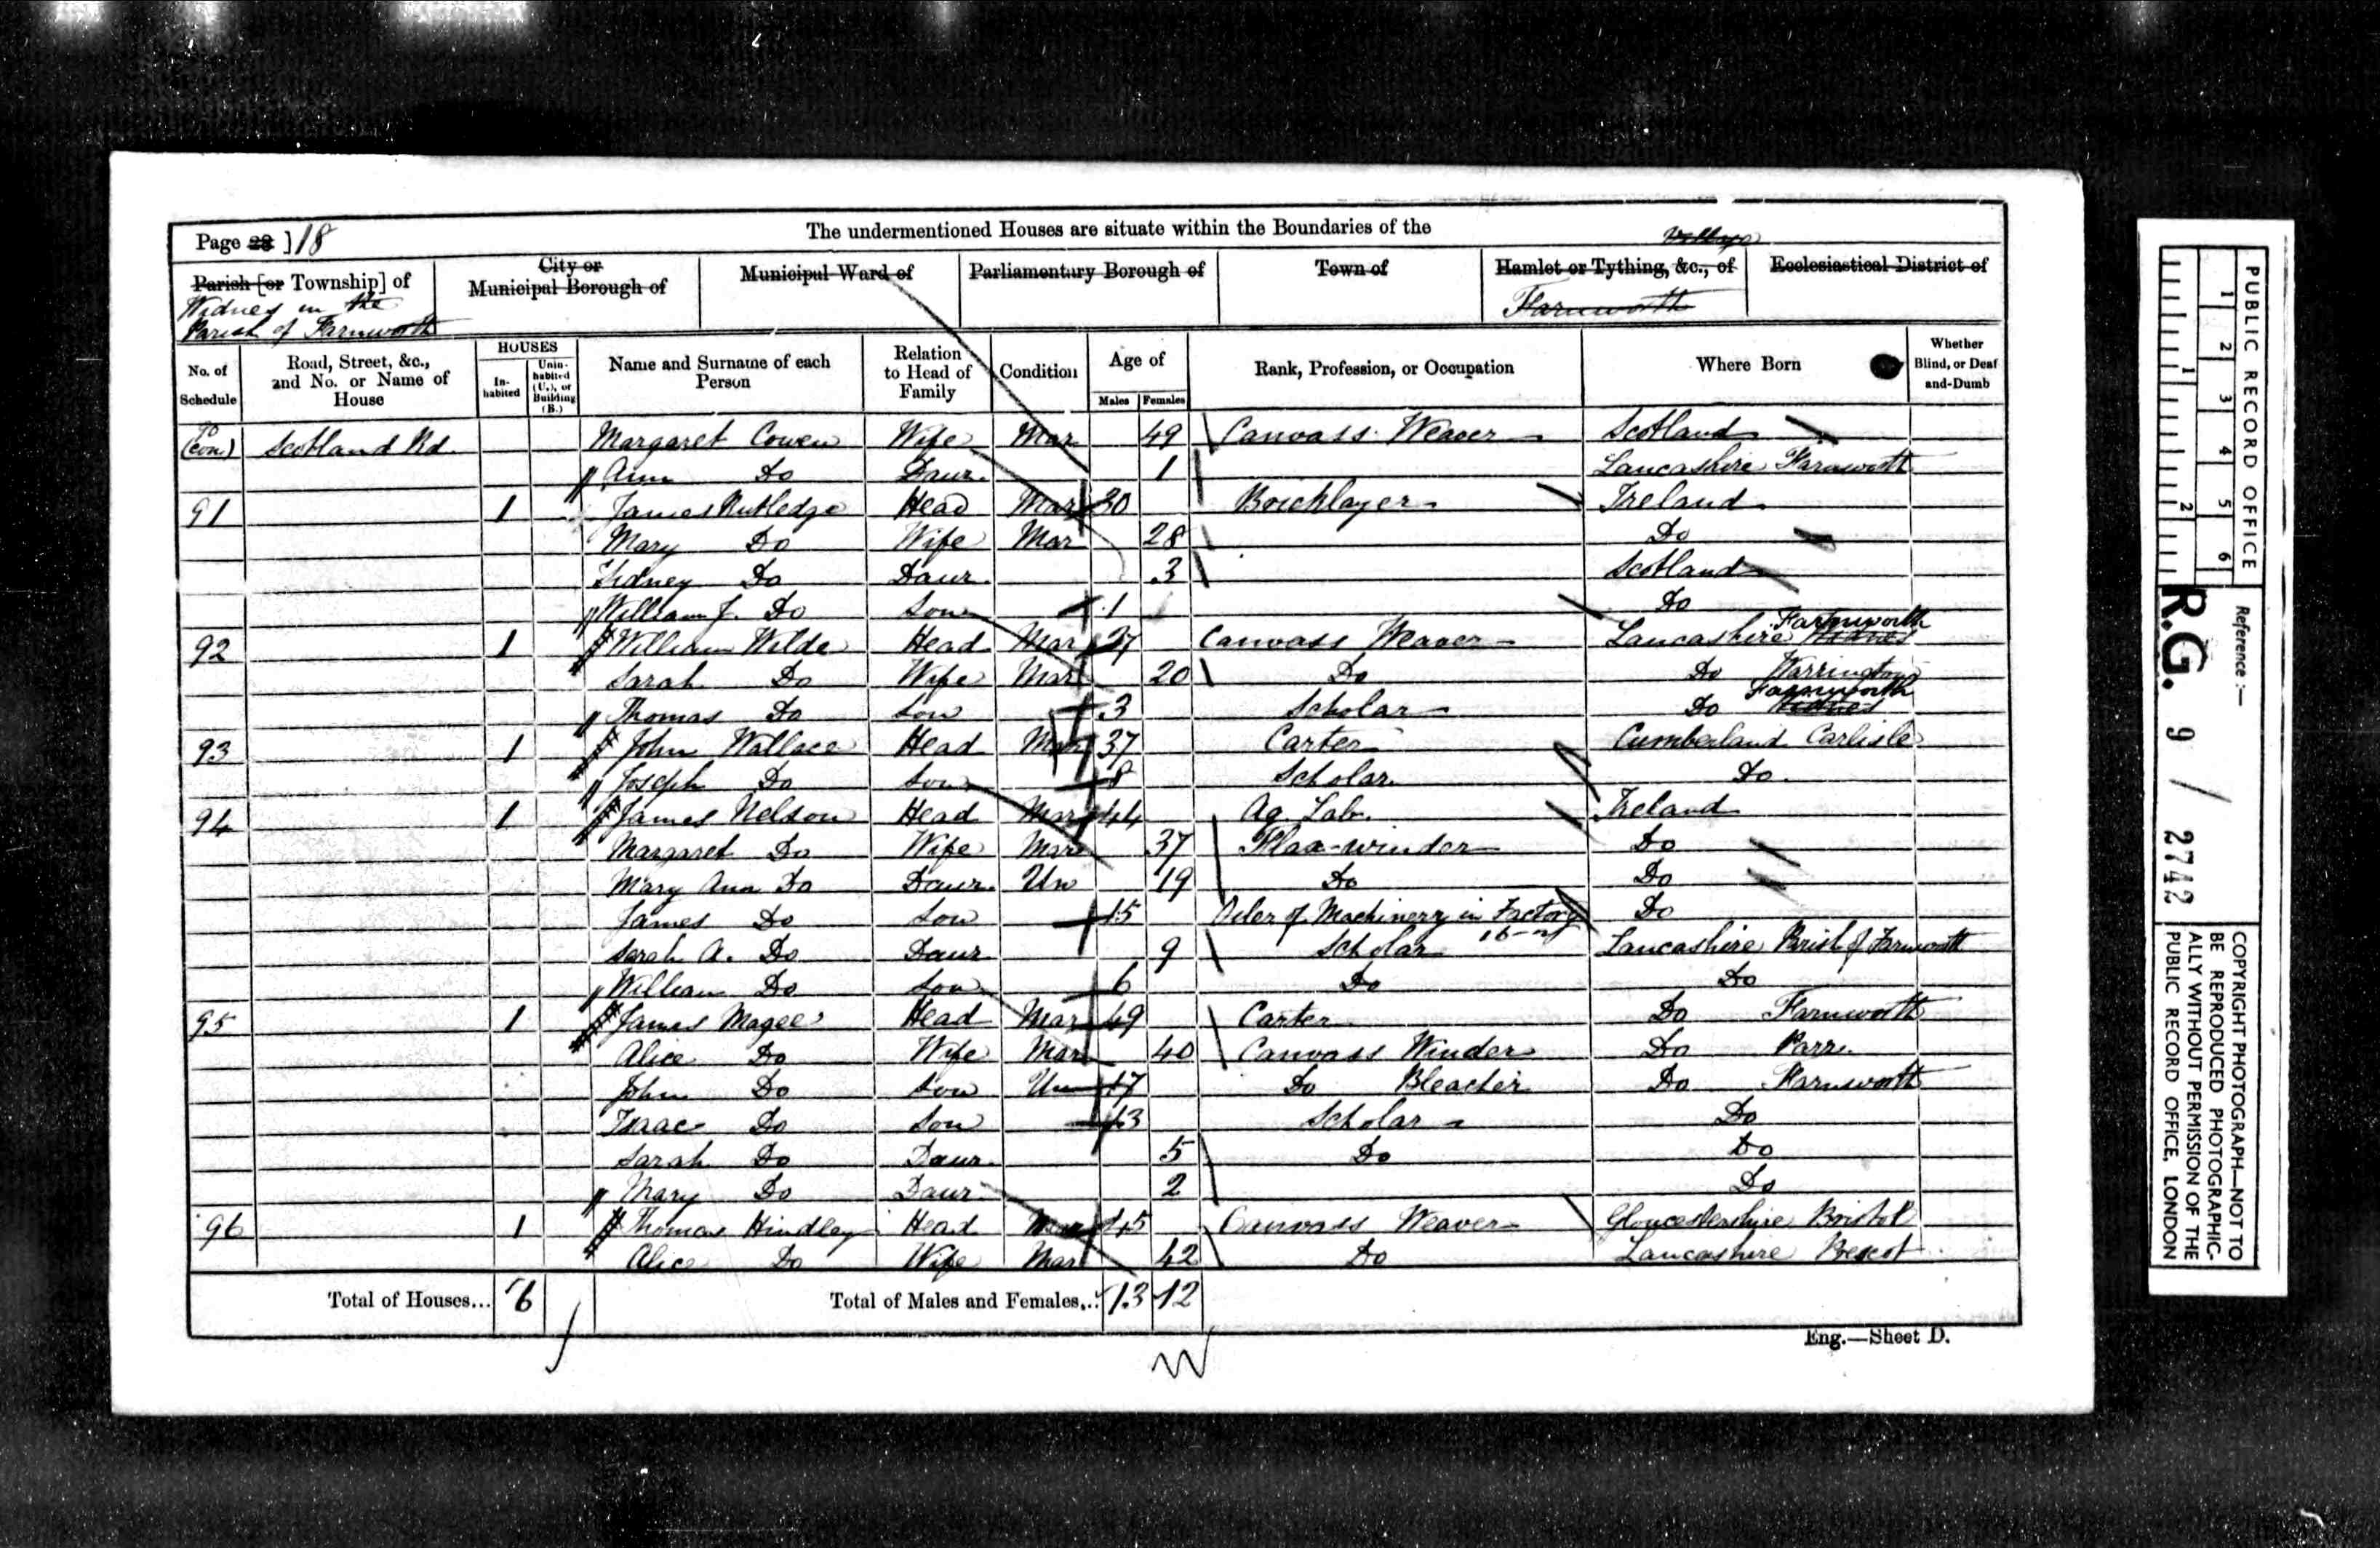 Page 28 ] 18
The undermentioned Houses are situate within the Boundaries of the
Village
Parish [or Township] of
Widnes in the
Parish of Farnworth
City or
Municipal Borough of
Municipal Ward of
Parliamentary Borough of
Town of
Hamlet or Tything, &c., of
Farnworth
Ecclesiastical District of
No. of Schedule
Road, Street, &c., and No. or Name of House
HOUSES
Inhabited
Uninhabited (U.), or Building (B.)
Name and Surname of each Person
Relation to Head of Family
Condition
Age of
Males Females
Rank, Profession, or Occupation
Where Born
Whether Blind, or Deaf and-Dumb
90 (con) Scotland Rd. Margaret Cowen Wife Mar 49 Canvass Weaver Scotland
Ann Do Daur. 1 Lancashire Farnworth
91 1 James Rutledge Head Mar 30 Bricklayer Ireland
Mary Do Wife Mar 28 Do
Sidney Do Daur. 3 Scotland
William J. Do Son 1 Do
92 1 William Wilde Head Mar 27 Canvass Weaver Lancashire Widnes Farnworth
Sarah Do Wife Mar 20 Do Do Warrington
Thomas Do Son 3 Scholar Do Widnes Farnworth
93 1 John Wallace Head Mar 37 Carter Cumberland Carlisle
Joseph Do Son 8 Scholar Do
94 1 James Nelson Head Mar 44 Ag Lab. Ireland
Margaret Do Wife Mar 37 Flax-winder Do
Mary Ann Do Daur. Un 19 Do Do
James Do Son 15 Oiler of Machinery in Factory Do
Sarah A. Do Daur 9 Scholar Lancashire Parish of Farnworth
William Do Son 6 Do Do
95 1 James Magee Head Mar 49 Carter Do Farnworth
Alice Do Wife Mar 40 Canvass Winder Do Parr.
John Do Son Un 17 Do Bleacher Do Farnworth
Isaac Do Son 13 Scholar Do
Sarah Do Daur. 5 Do Do
Mary Do Daur. 2 Do
96 1 Thomas Hindley Head Mar 45 Canvass Weaver Gloucestershire Bristol
Alice Do Wife Mar 42 Do Lancashire Prescot
Total of Houses... 6
Total of Males and Females... 13 12
Eng.—Sheet D.
PUBLIC RECORD OFFICE
1 2 3 4 5 6
1 2
Reference :—
R.G. 9 / 2742
COPYRIGHT PHOTOGRAPH—NOT TO
BE REPRODUCED PHOTOGRAPHIC-
ALLY WITHOUT PERMISSION OF THE
PUBLIC RECORD OFFICE, LONDON